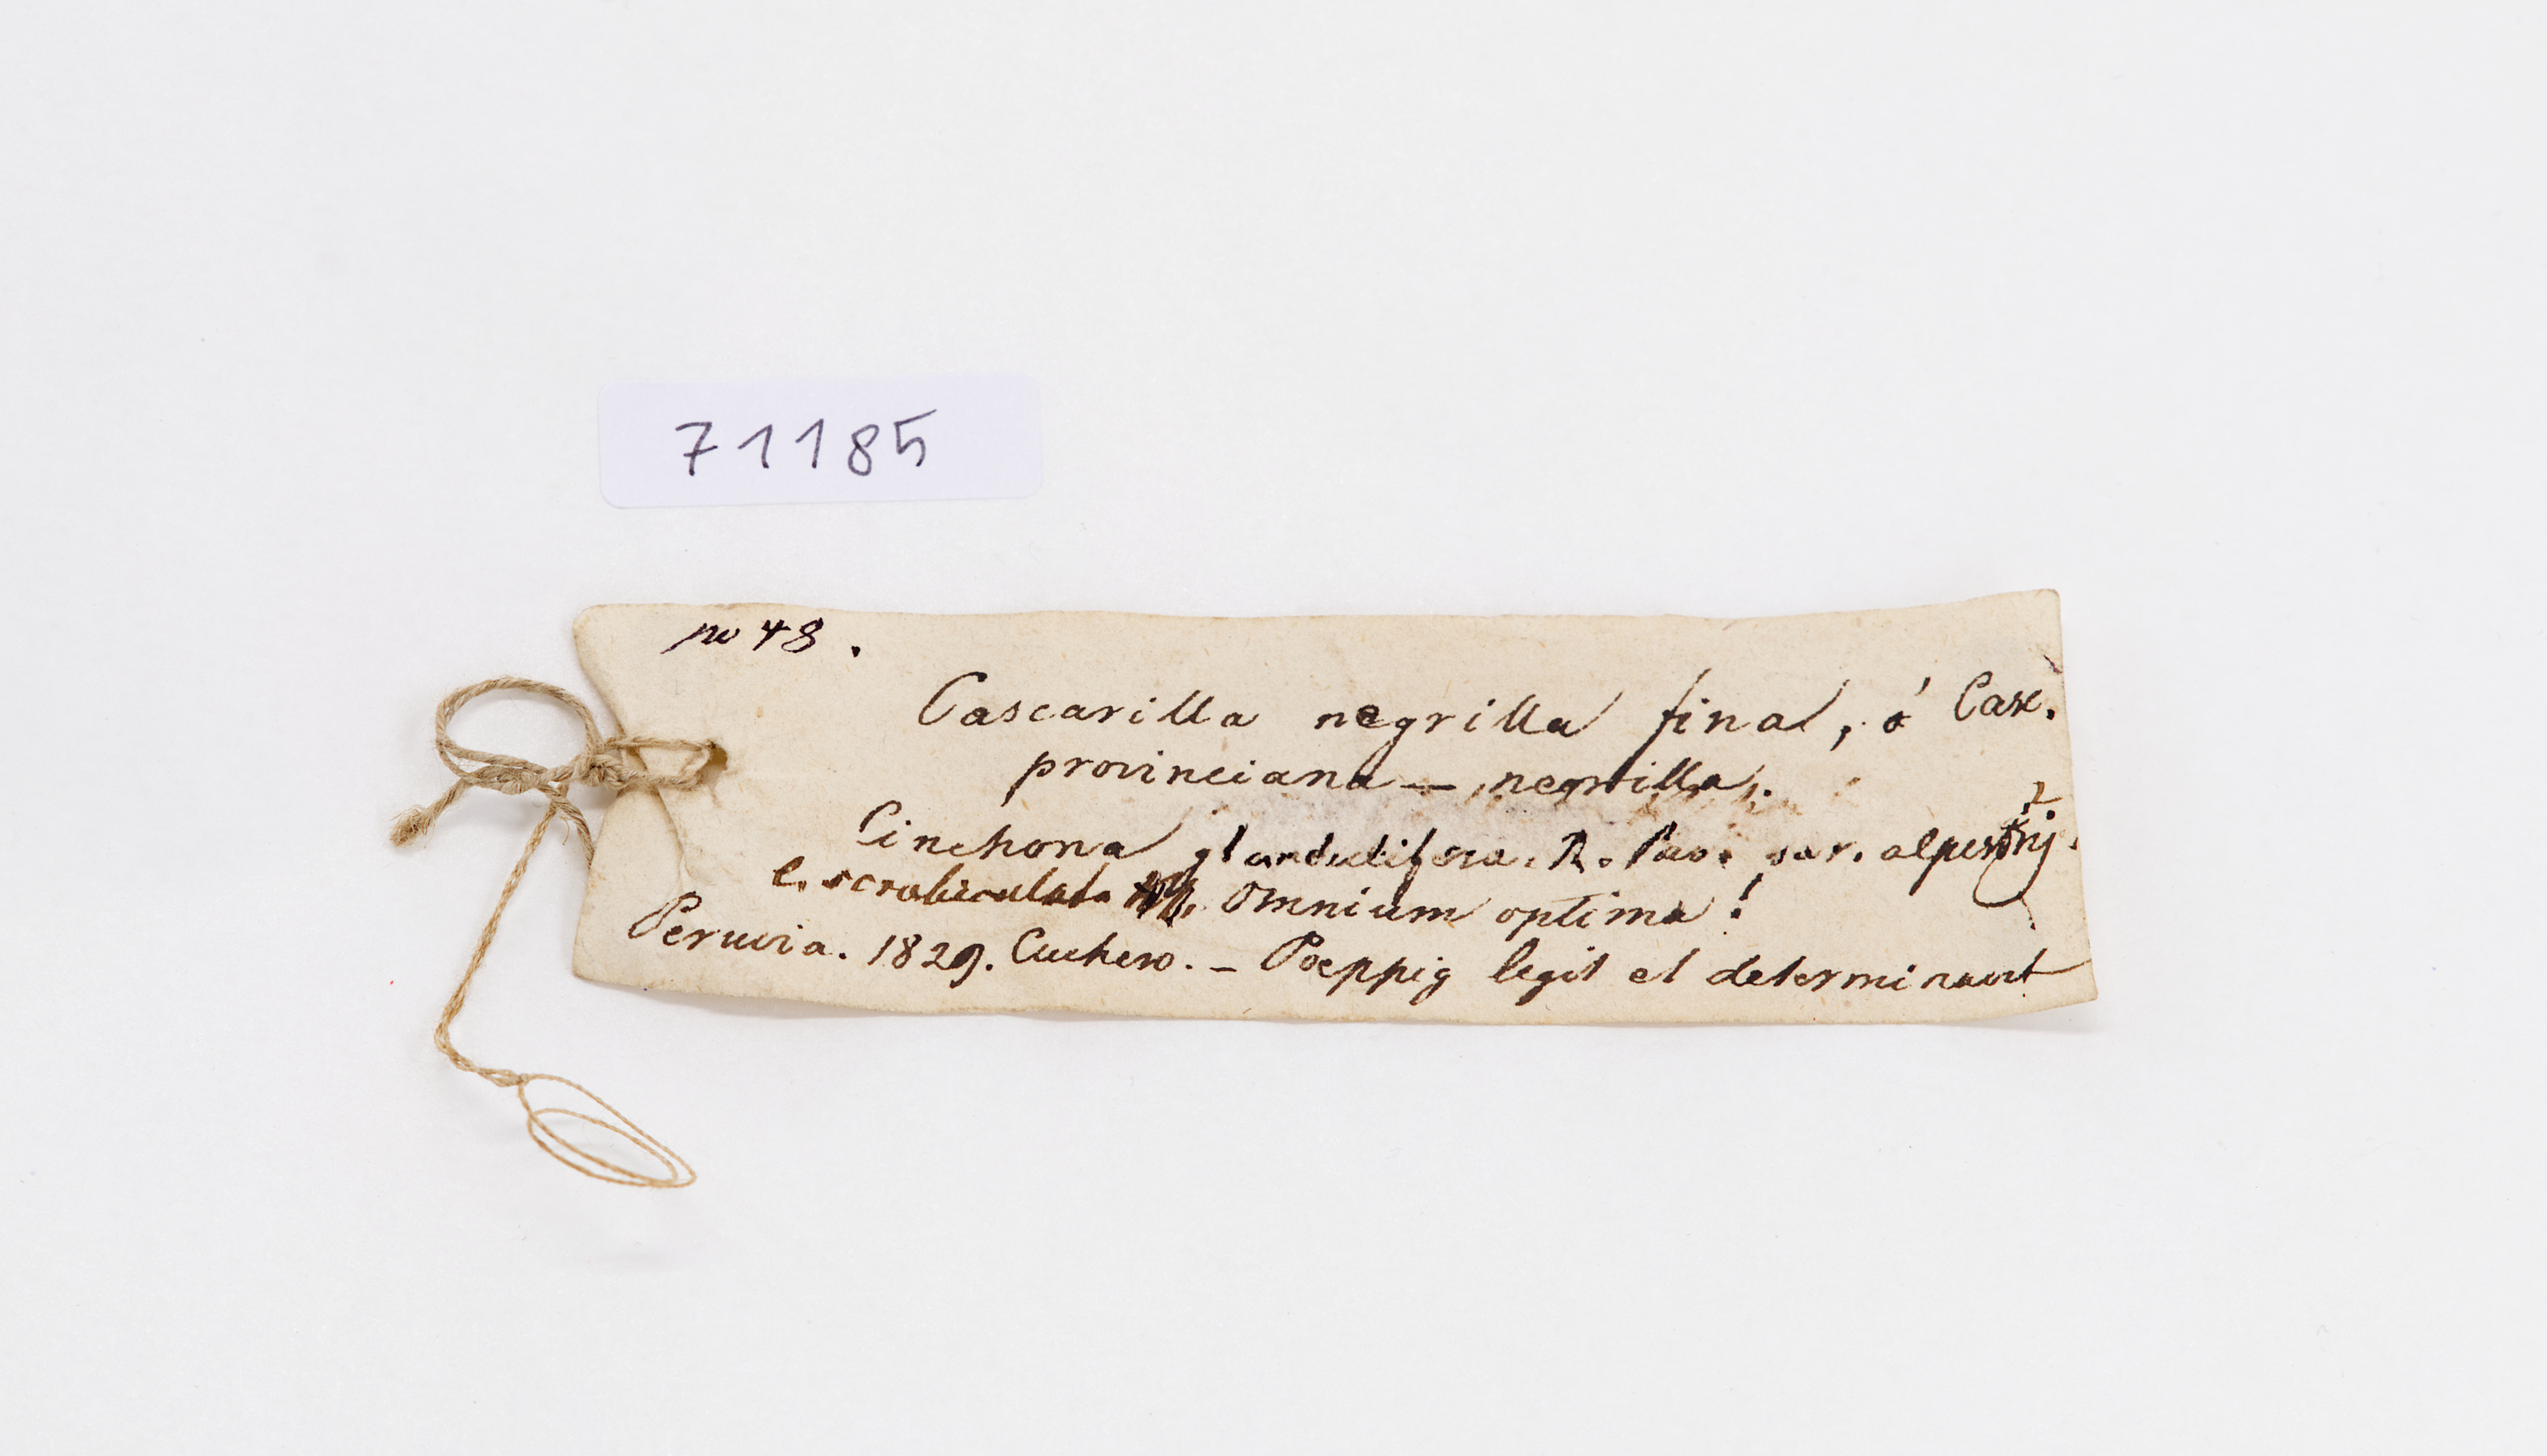 71185
no 48.
Cascarilla negrilla fina, ó Casc.
provinciana — negrilla.
Cinchona glandulifera. R. Pav. var. alpestris. ?
C. scrobiculata omnium optima!
Peruvia. 1829. Cuchero. – Poeppig legit et determinavit